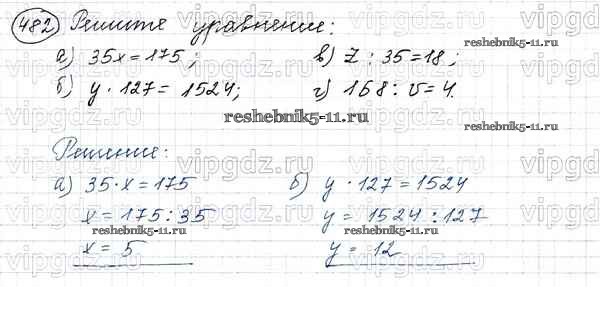 482 Решите уравнение:
а) 35x = 175; в) z : 35 = 18;
б) y · 127 = 1524; г) 168 : v = 4.
reshebnik5-11.ru
reshebnik5-11.ru
reshebnik5-11.ru
Решение:
а) 35 · x = 175 б) y · 127 = 1524
x = 175 : 35 y = 1524 : 127
reshebnik5-11.ru
reshebnik5-11.ru
x = 5 y = 12
vipgdz.ru